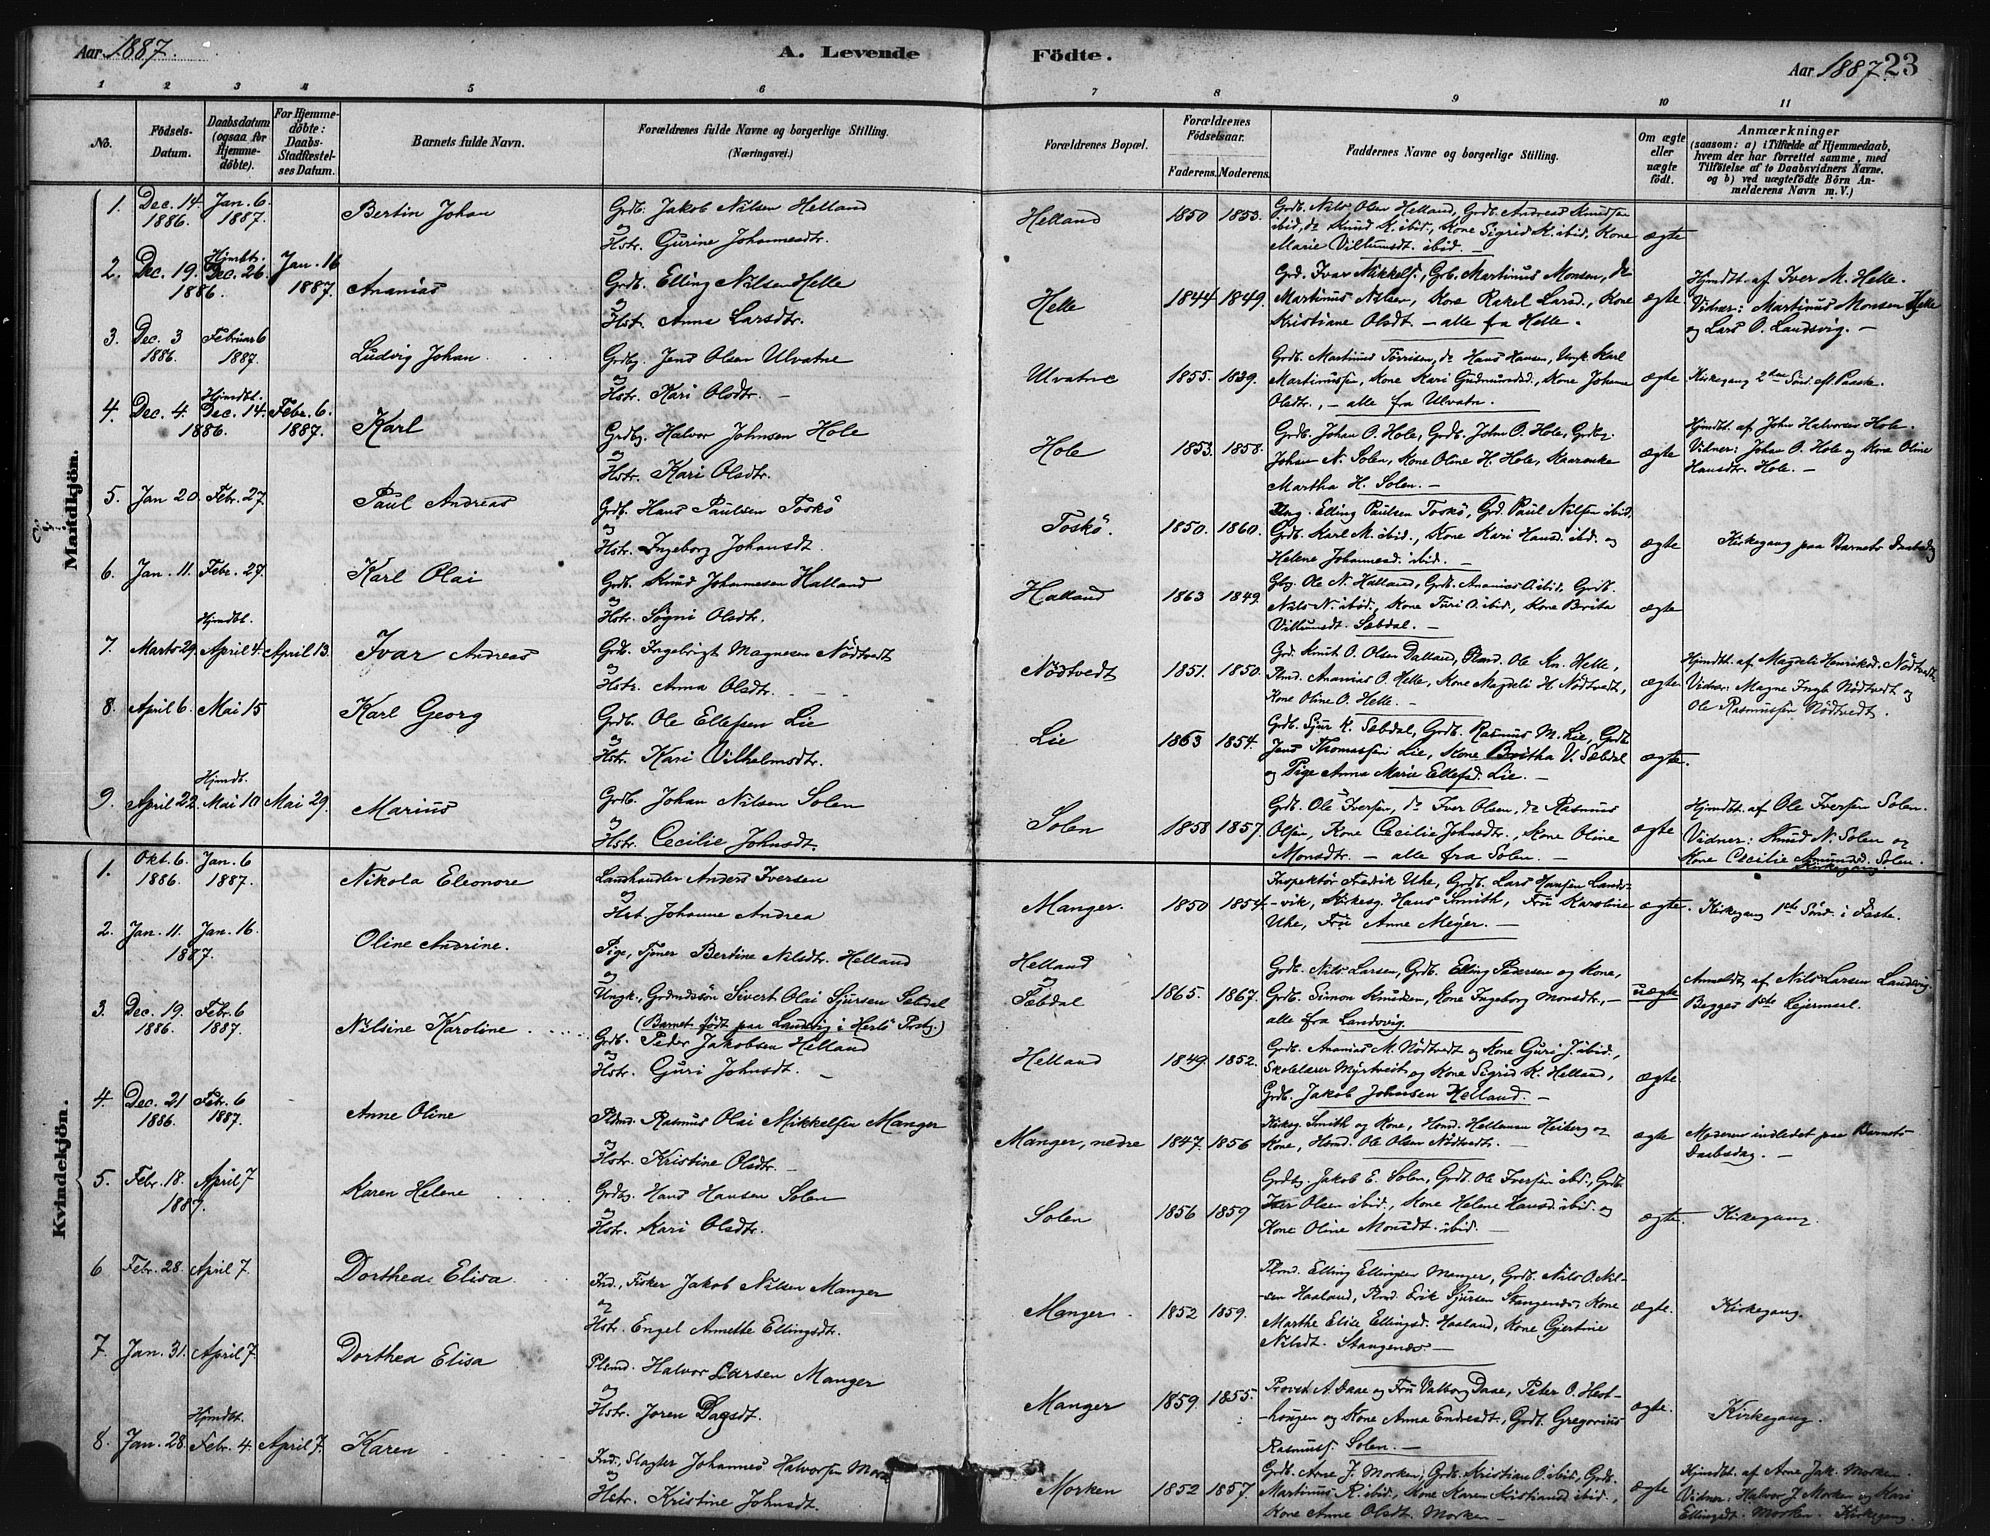 Aar 1887.
A. Levende
Födte.
Aar 1887. 23
1 2 3 4 5 6 7 8 9 10 11
No.
Födsels-Datum.
Daabsdatum (ogsaa for Hjemmedöbte).
For Hjemmedöbte: Daabs-Stadfæstelses Datum.
Barnets fulde Navn.
Forældrenes fulde Navne og borgerlige Stilling. (Næringsvei.)
Forældrenes Bopæl.
Forældrenes Födselsaar.
Faderens. Moderens.
Faddernes Navne og borgerlige Stilling.
Om ægte eller uægte födt.
Anmærkninger (saasom: a) i Tilfælde af Hjemmedaab, hvem der har forrettet samme, med Tilföielse af to Daabsvidners Navne. og b) ved uægtefödte Börn Anmelderens Navn m. V.)
Mandkjön.
1. Dec. 14. 1886. Jan. 6. 1887. Bertin Johan
Grdb. Jakob Nilsen Helland
og
Hstr. Gurine Johannesdtr.
Helland 1850 1853.
Grdb. Nils Olsen Helland, Grdb. Andreas Knudsen
ibid, do Knud K. ibid., Kone Sigrid K. ibid, Kone
Marie Villumsdt. ibid. —
ægte
2. Dec. 19. 1886. Hjmdbt. Dec. 26. Jan. 16 1887. Ananias
Grdb. Elling Nilsen Helle
og
Hst. Anna Larsdtr.
Helle 1844 1849.
Grd. Ivar Mikkels., Grb. Martinus Monsen, do
Martinus Nilsen, Kone Rakel Larsd., Kone
Kristiane Olsdt. — alle fra Helle.
ægte
Hjmdbt. af Iver M. Helle.
Vidner: Martinus Monsen Helle
og Lars O. Landsvig. —
3. Dec. 3 1886. Februar 6 1887. Ludvig Johan
Grdbg. Jens Olsen Ulvatne
og
Hstr. Kari Olsdtr. —
Ulvatne 1855. 1839.
Grdb. Martinus Torrisen, do Hans Hansen, Ungk. Karl
Martinussen, Kone Kari Gudmundsd., Kone Johanne
Olsdtr., — alle fra Ulvatn.
ægte
Kirkegang 2den Sönd. eft. Paaske.
4. Dec. 4. 1886. Hjmdbt. Dec. 14. Febr. 6. 1887. Karl
Grdbg. Halvor Johnsen Hole
og
Hstr. Kari Olsdtr.
Hole 1853. 1858.
Grdb. Johan O. Hole, Grdb. John O. Hole, Grdbg.
Johan N. Solen, Kone Oline H. Hole,
Martha H. Solen. —
ægte
Hjmdbt. af John Halvorsen Hole.
Vidner: Johan O. Hole og Kone Oline
Hansdtr. Hole. —
5. Jan 20. Febr. 27. Paul Andreas
Grdf. Hans Paulsen Toskö
og
Hstr. Ingeborg Johansdt.
Toskö. 1850. 1860.
Elling Paulsen Toskö, Grd. Paul Nilsen ibid,
Grdb. Karl M. ibid., Kone Kari Hansd. ibid. og
Helene Johannesd. ibid. —
ægte
Kirkegang paa Barnets Daabsdag
6. Jan. 11. Febr. 27. Karl Olai
Grdb. Knud Johannesen Halland
og
Hstr. Sögni Olsdtr.
Halland 1863 1849.
Gbg. Ole N. Halland, Grdb. Ananias O. ibid, Grdb.
Nils N. ibid., Kone Turi O. ibid., Kone Brita
Villumsdt. Sæbdal. —
ægte
7. Marts 29. Hjmdbt. April 4. April 13. Ivar Andreas
Grdb. Ingebrigt Magnesen Nödtvedt
og
Hstr. Anna Olsdtr.
Nödtvedt 1851. 1850.
Grd. Knut O. Olsen Dalland, Plmd. Ole Kn. Helle,
Plmd. Ananias O. Helle, Kone Magdeli H. Nödtvedt,
Kone Oline O. Helle. —
ægte
Hjmdbt. af Magdeli Henriksd. Nödtvedt.
Vidner: Magne Ingb. Nödtvedt og
Ole Rasmussen Nödtvedt.
8. April 6. Mai 15 Karl Georg
Grdb. Ole Ellefsen Lie
og
Hstr. Kari Vilhelmsdtr.
Lie 1863 1854.
Grdb. Sjur K. Sæbdal, Grdb. Rasmus M. Lie, Grdb.
Jens Thomassen Lie, Kone Britha V. Sæbdal
og Pige Anna Marie Ellefsd. Lie. —
ægte.
9. April 22. Hjmdbt. Mai 10 Mai 29. Marius
Grdb. Johan Nilsen Solen
og
Hstr. Cecilie Johnsdt.
Solen 1858 1857.
Grdb. Ole Iversen, do Iver Olsen, do Rasmus
Olsen, Kone Cecilie Johnsdtr., Kone Oline
Monsdtr. — alle fra Solen. —
ægte
Hjmdbt. af Ole Iversen Solen.
Vidner: Knud N. Solen og
Kone Cecilie Amundsd. Solen.
Kirkegang.
Kvindekjön.
1. Okt. 6. 1886. Jan. 6 1887. Nikola Eleonore
Landhandler Anders Iversen
og
Hst. Johanne Andrea
Manger. 1850 1854.
Inspektør Fredrik Uhe, Grdb. Lars Hansen Lands-
-vik, Kirkesg. Hans Smith, Fru Karoline
Uhe, Fru Anne Meyer. —
ægte.
Kirkegang 1ste Sönd. i Faste.
2. Jan. 11. 1887. Jan. 16. Oline Andrine.
Pige, Tjener Bertine Nilsdtr. Helland
og
Ungk., Grdmdssön Sivert Olai Sjursen Sæbdal
(Barnet födt paa Landsvig i Herlö Prstg.)
Helland
Sæbdal 1865. 1867.
Grdb. Nils Larsen, Grdb. Elling Pedersen og Kone,
Grdb. Simon Knudsen, Kone Ingeborg Monsdtr., —
alle fra Landsvig.
uægte
Anmeldt af Nils Larsen Landsvig.
Begges 1ste Leiermaal.
3. Dec. 19. 1886. Febr. 6 1887. Nilsine Karoline
Grdb. Peder Jakobsen Helland
og
Hstr. Guri Johnsdt. —
Helland 1849. 1852.
Grdb. Ananias M. Nödtvedt og Kone Guri J. ibid.,
Skolelærer Myrtveit og Kone Sigrid K. Helland,
Grdb. Jakob Johnsen Helland. —
ægte.
4. Dec. 21 1886. Febr. 6 1887. Anne Oline
Pldmd. Rasmus Olai Mikkelsen Manger
og
Hstr. Kristine Olsdtr. —
Manger, nedre 1847. 1856
Kirksg. Smith og Kone, Hand. Helleman Heiberg og
Kone, Hand. Ole Olsen Nödtvedt. —
ægte
Moderen indledet paa Barnets
Daabsdag. —
5. Febr. 18. 1887. April 7 Karen Helene
Grdbg. Hans Hansen Solen
og
Hstr. Kari Olsdtr.
Solen 1856 1859
Grdbg. Jakob E. Solen, Grdb. Ole Iversen ibd., Grdb.
Iver Olsen ibid., Kone Helene Hansd. ibid. og
Kone Oline Monsdt. ibid. —
ægte.
Kirkegang.
6 Febr. 28. April 7. Dorthea Elisa
Ind., Fisker Jakob Nilsen Manger
og
Hstr. Engel Annette Ellingsdtr.
Manger. 1852 1859.
Plmd. Elling Ellingsen Manger, Grdb. Nils O. Nil-
sen Haaland, Plmd. Erik Sjursen Stangenes, Kone
Marthe Elise Ellingsd. Haaland, Kone Gjertine
Nilsdt. Stangenes —
ægte.
Kirkegang.
7. Jan. 31. April 7. Dorthea Elisa
Plsmd. Halvor Larsen Manger
og
Hstr. Joren Dagsdt.
Manger 1859. 1855.
Provst A. Daae og Fru Valborg Daae, Peter O. Hest-
-hougen og Kone Anna Endresdt., Grdb. Gregorius
Rasmuss. Solen. —
ægte.
Kirkegang.
8. Jan. 28. Hjmdbt. Febr. 4. April 7. Karen
Ind., Slagter Johannes Halvorsen
og
Hstr. Kristine Johnsdt.
Morken 1852 1857.
Grdb. Arne J. Morken, Grdb. Kristian O. ibid., Grdb.
Martinus R. ibid., Kone Karen Kristiansd. ibid.,
Kone Anne Olsdt. Morken —
ægte
Hjmdbt. af Arne Jak. Morken.
Vidner: Halvor J. Morken og Kari
Ellingsdt. Morken. Kirkegang.